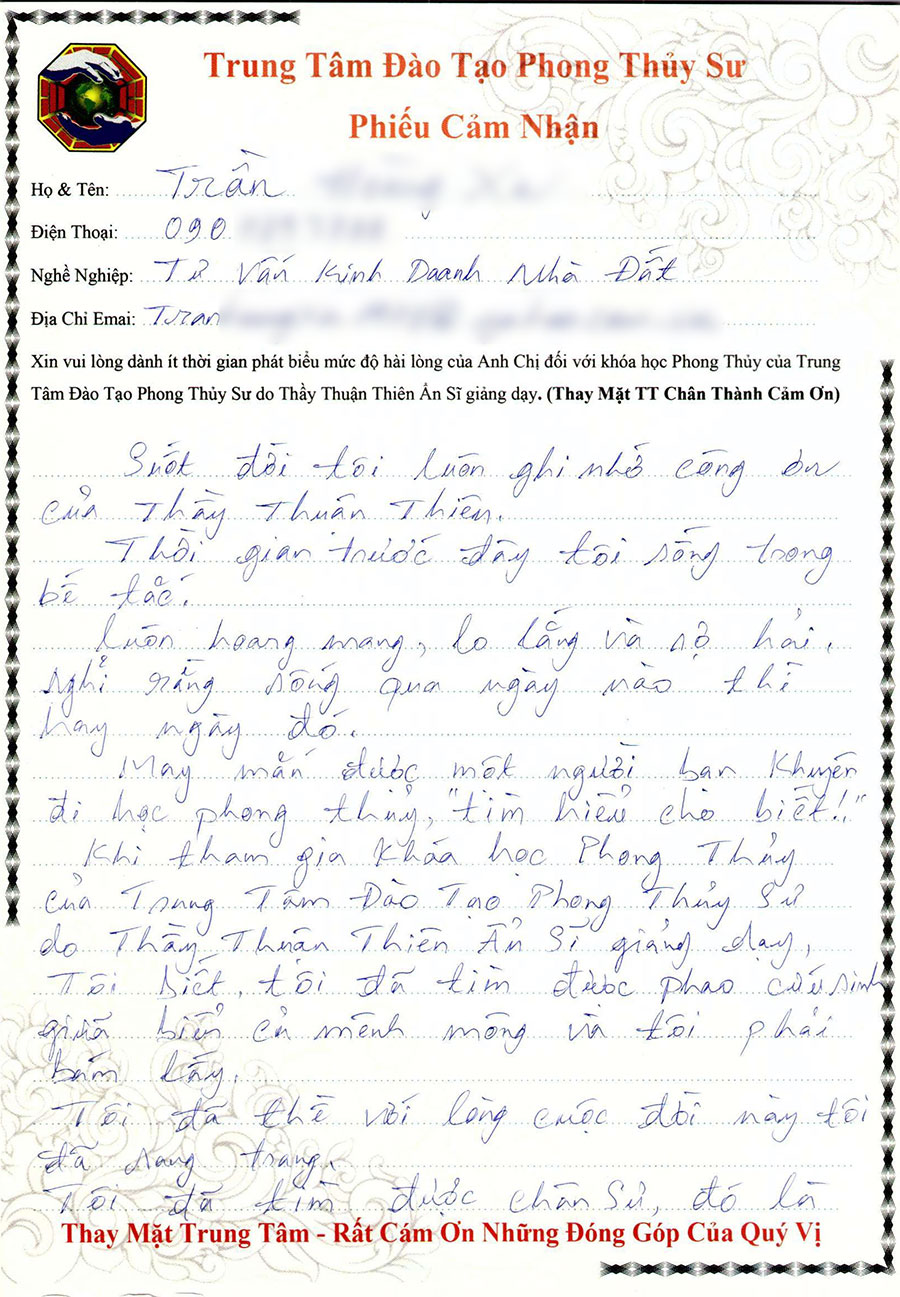 Trung Tâm Đào Tạo Phong Thủy Sư
Phiếu Cảm Nhận
Họ & Tên: Trần
Điện Thoại: 090
Nghề Nghiệp: Tư Vấn Kinh Doanh Nhà Đất
Địa Chỉ Emai: Tran
Xin vui lòng dành ít thời gian phát biểu mức độ hài lòng của Anh Chị đối với khóa học Phong Thủy của Trung
Tâm Đào Tạo Phong Thủy Sư do Thầy Thuận Thiên Ẩn Sĩ giảng dạy. (Thay Mặt TT Chân Thành Cảm Ơn)
Suốt đời tôi luôn ghi nhớ công ơn
của Thầy Thuận Thiên.
Thời gian trước đây tôi sống trong
bế tắc.
Luôn hoang mang, lo lắng và sợ hải,
nghỉ rằng sống qua ngày nào thì
hay ngày đó.
May mắn được một người bạn khuyên
đi học phong thủy, "tìm hiểu cho biết!"
Khi tham gia khóa học Phong Thủy
của Trung Tâm Đào Tạo Phong Thủy Sư
do Thầy Thuận Thiên Ẩn Sĩ giảng dạy,
Tôi biết, tôi đã tìm được phao cứu sinh
giữa biển cả mênh mông và tôi phải
bám lấy.
Tôi đã thề với lòng cuộc đời này tôi
đã sang trang.
Tôi đã tìm được chân Sư, đó là
Thay Mặt Trung Tâm - Rất Cám Ơn Những Đóng Góp Của Quý Vị